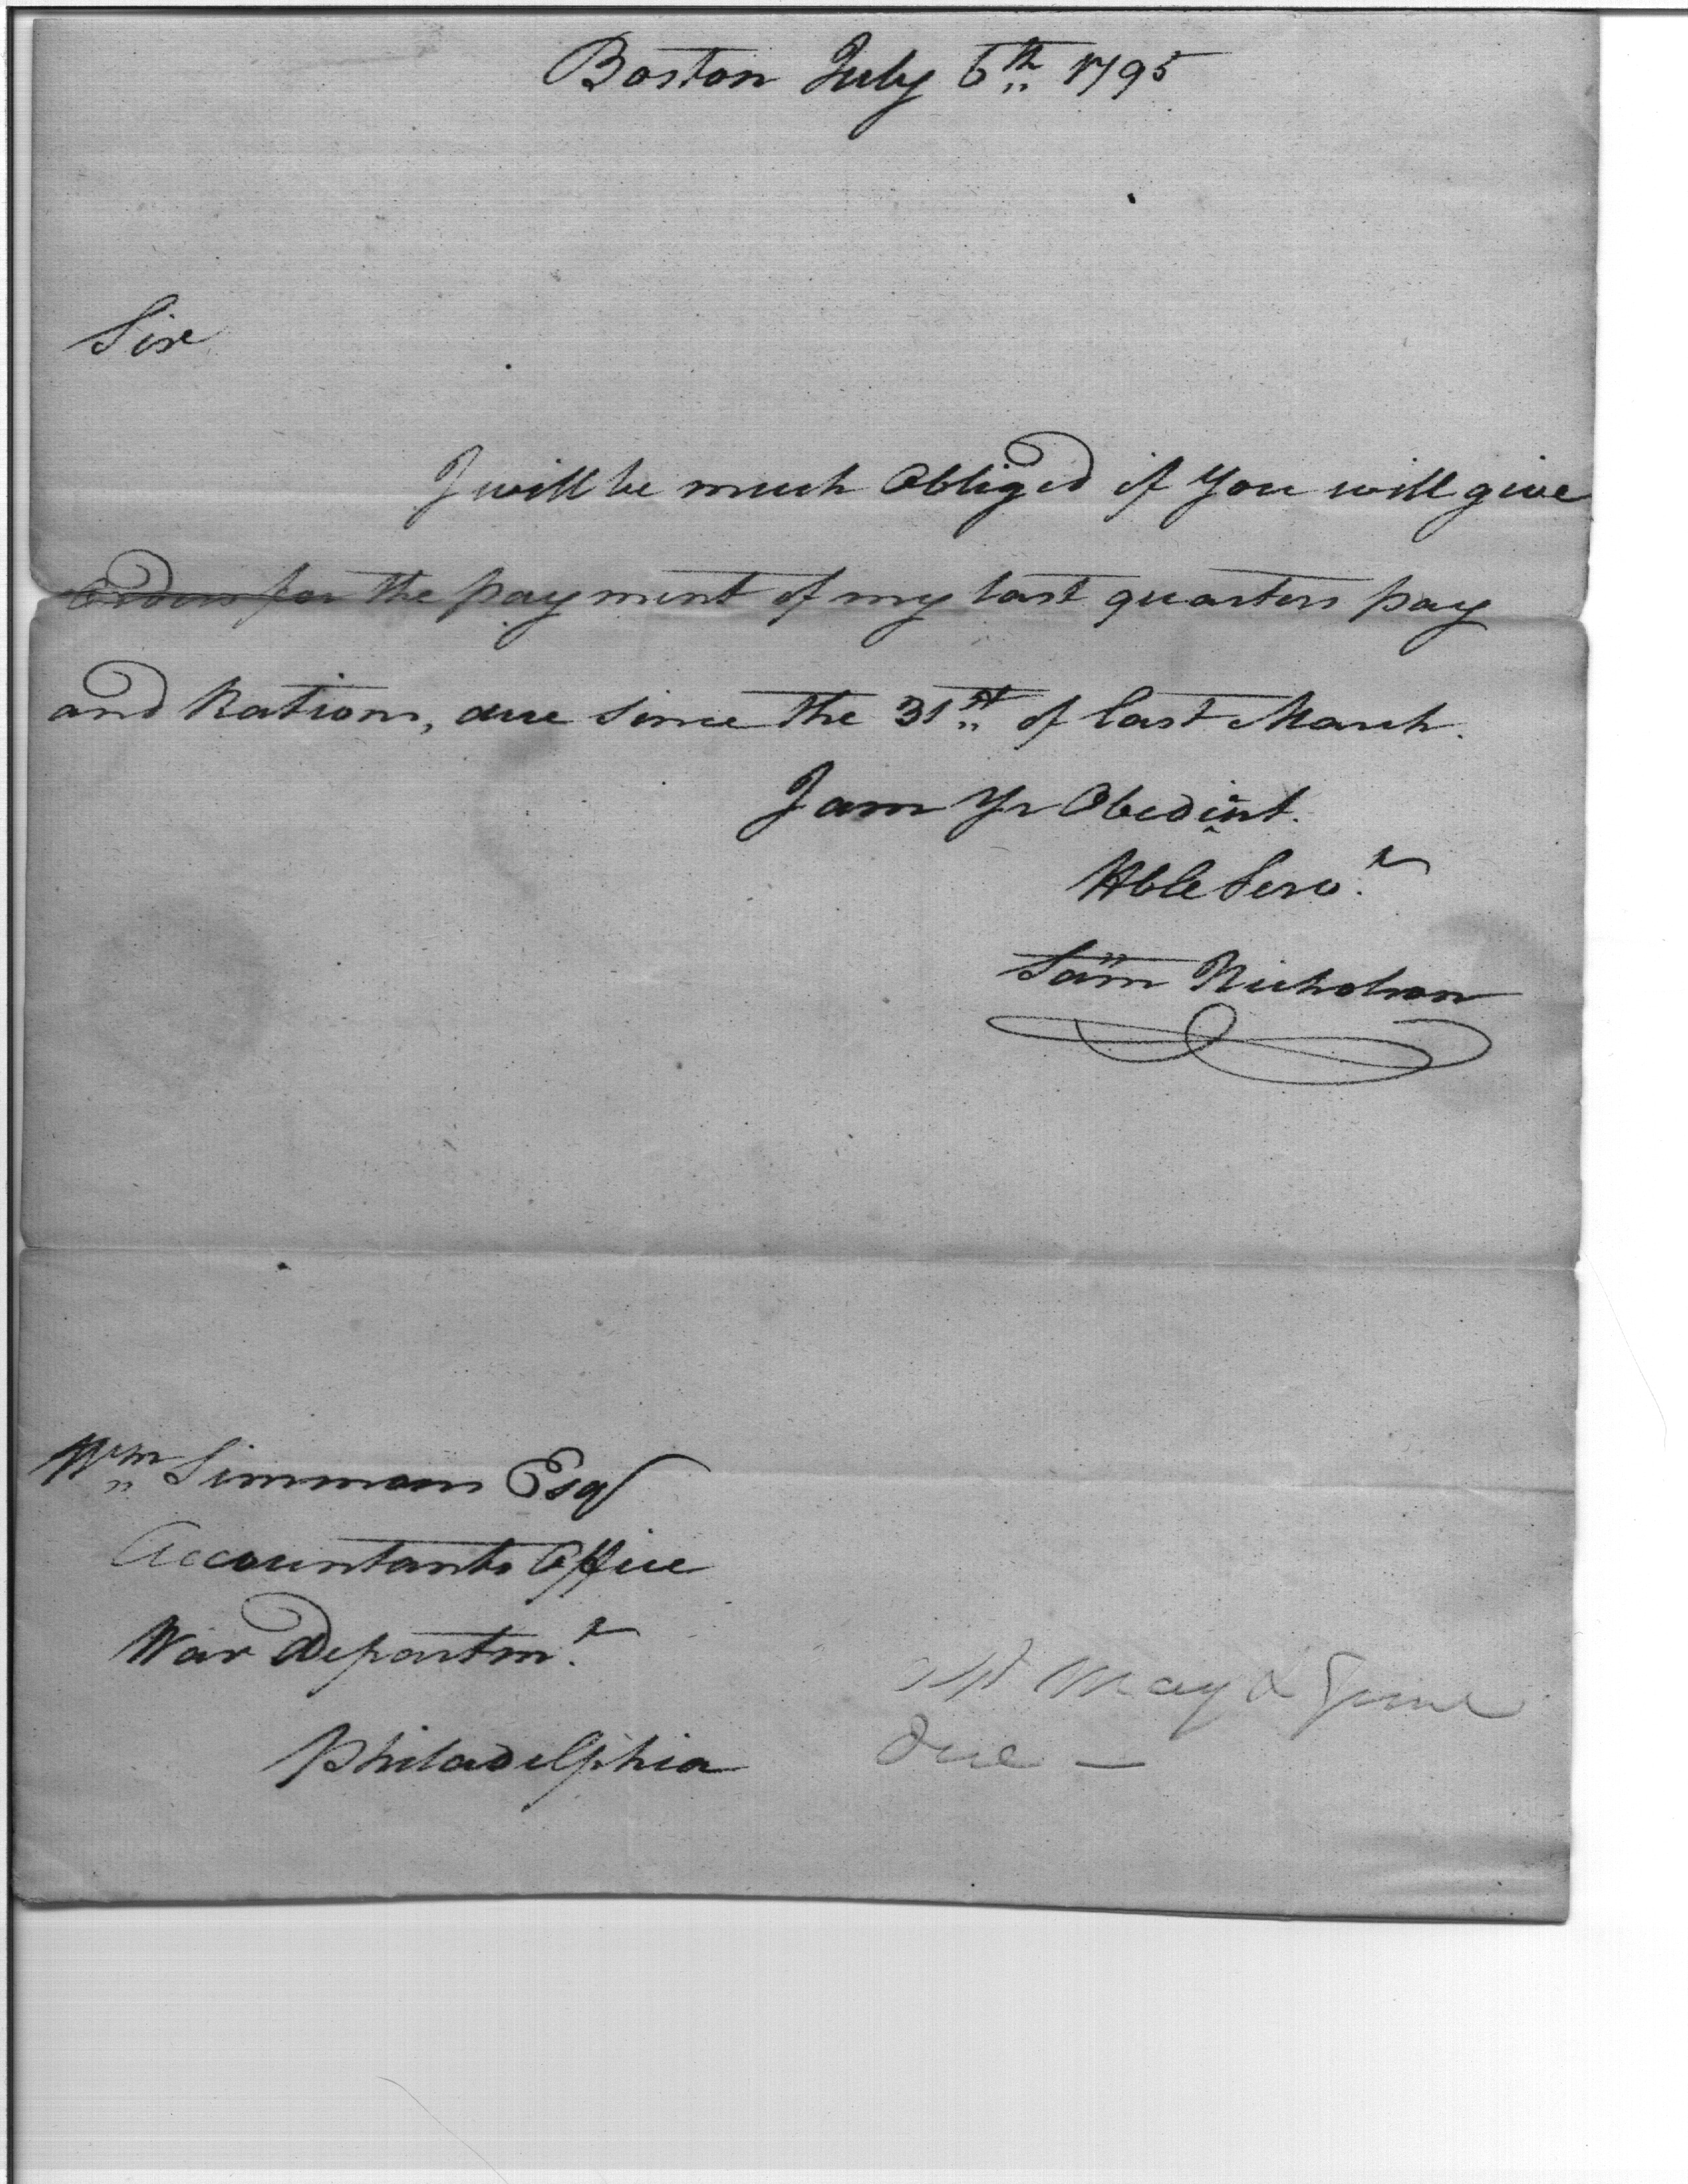 Boston July 6th 1795
Sir
I will be much Obliged if You will give
Orders for the payment of my last quarters pay
and Rations, due since the 31st of last March.
I am Yr Obedient.
Hble Servt
Sam Nicholson
Wm Simmons Esq
Accountants Office
War Departmt
Philadelphia
May & June
due —